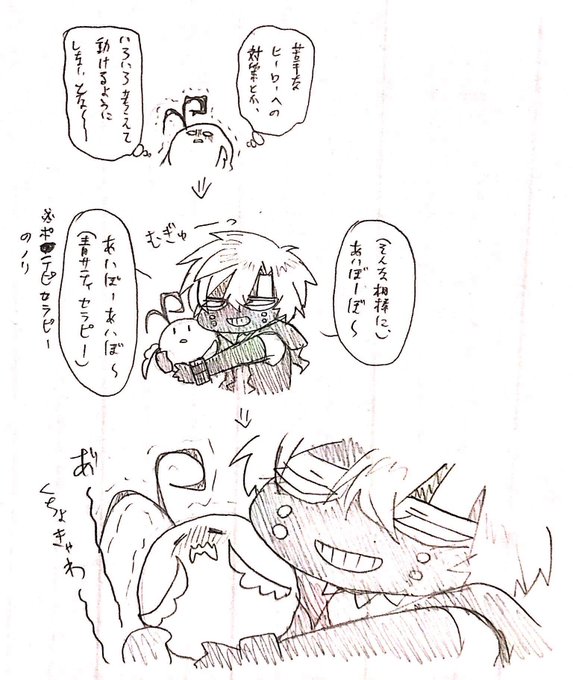 苦手な
ヒーローへの
対策とか、
いろいろ考えて
動けるように
しなきゃ、となる〜
むぎゅーっ
(そんな相棒に、
あいぼーぼ〜
あいぼーあいぼ〜
(青サティセラピー)
テピセラピー
のノリ
あ〜
くちょきゃわ〜